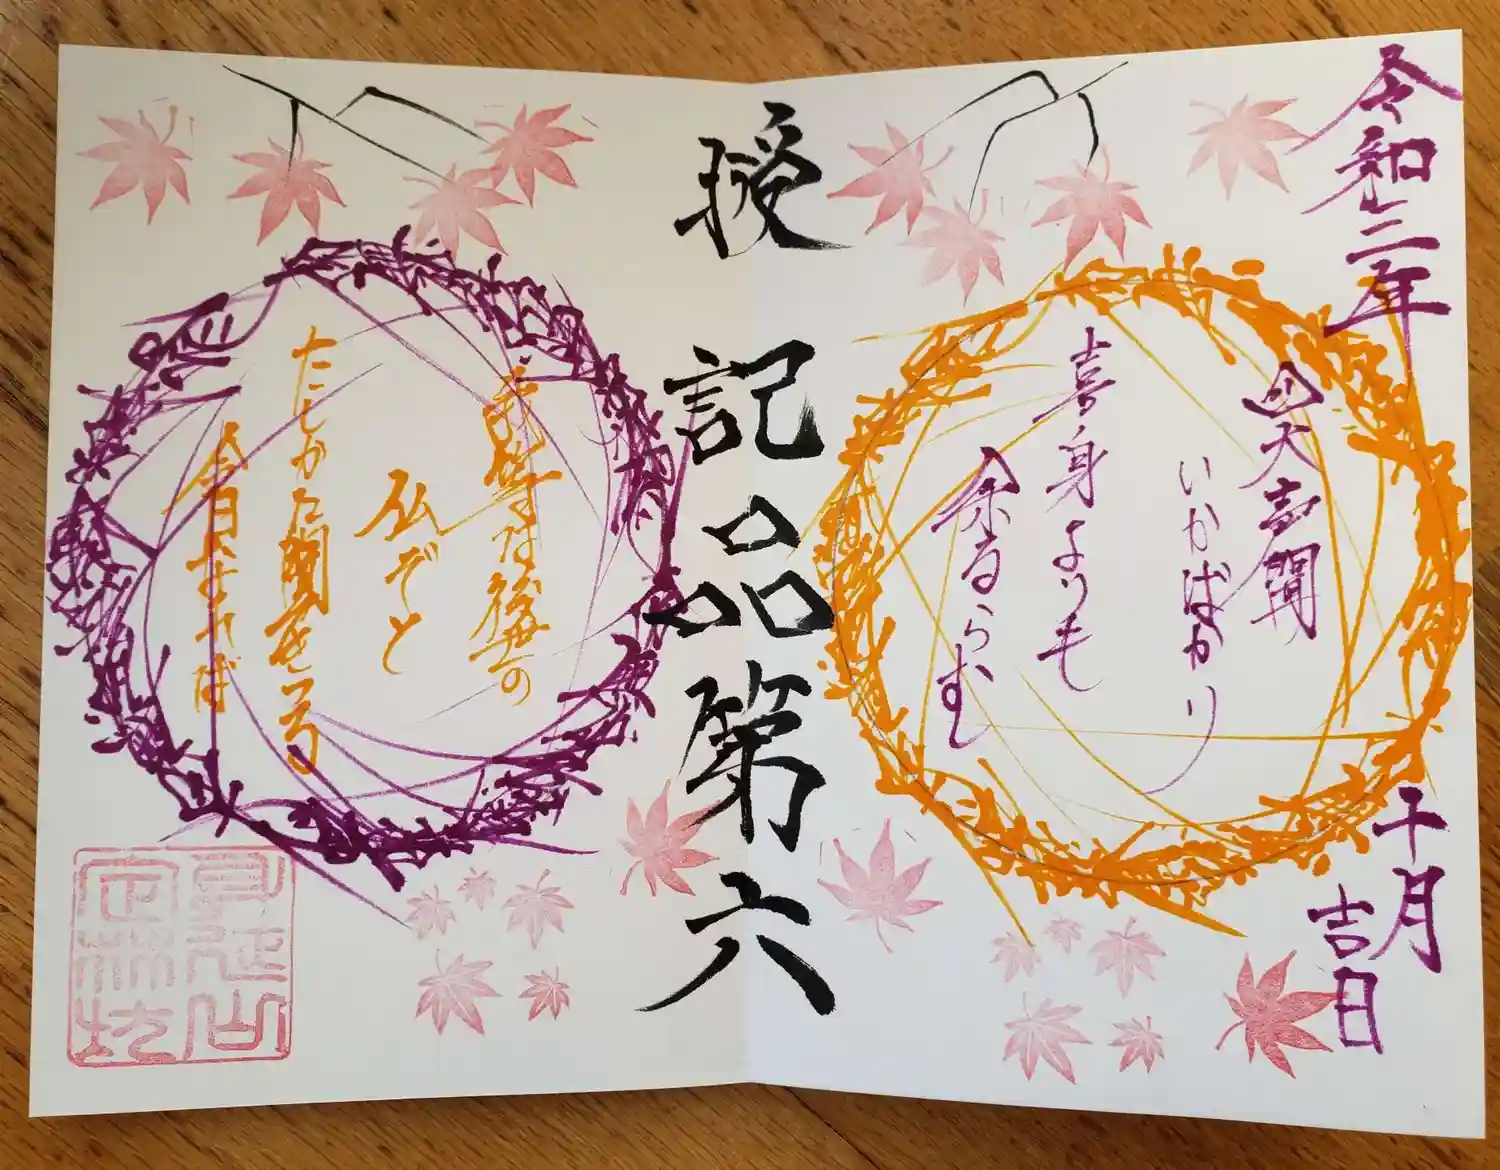 令和三年
十月
吉日
四大声聞
いかばかり
喜身よりも
余るらむ
授記品第六
我等は後世の
仏ぞと
たしかに聞きつる
今日なれば
身延山
定林坊